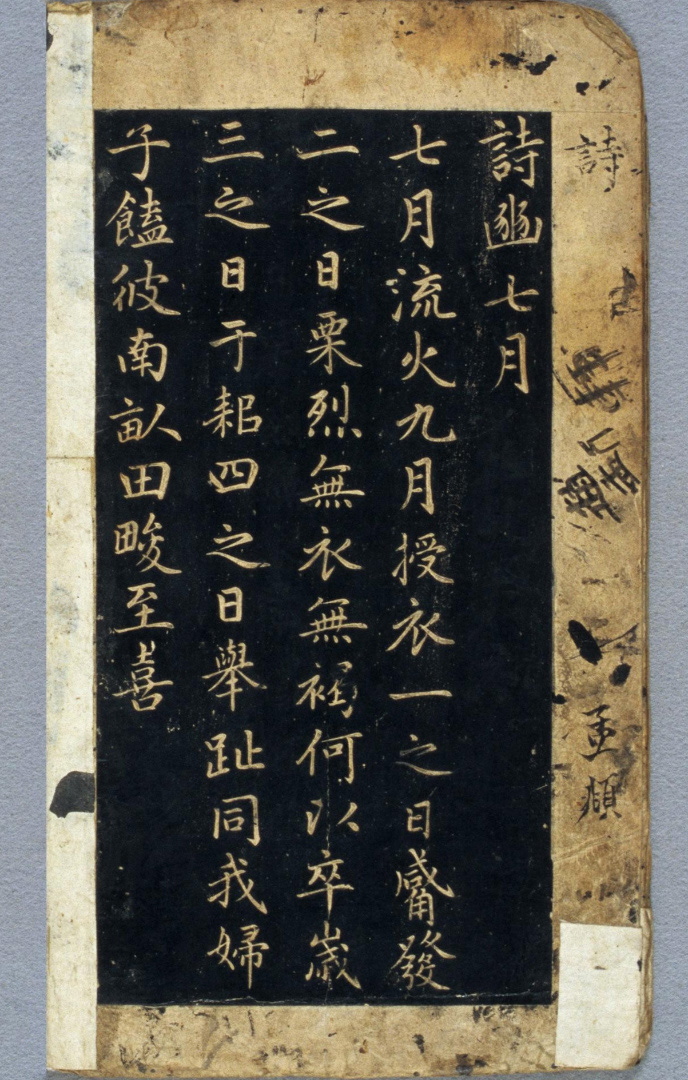 詩
詩豳七月
七月流火九月授衣一之日觱發
二之日栗烈無衣無褐何以卒歲
三之日于耜四之日舉趾同我婦
子饁彼南畝田畯至喜